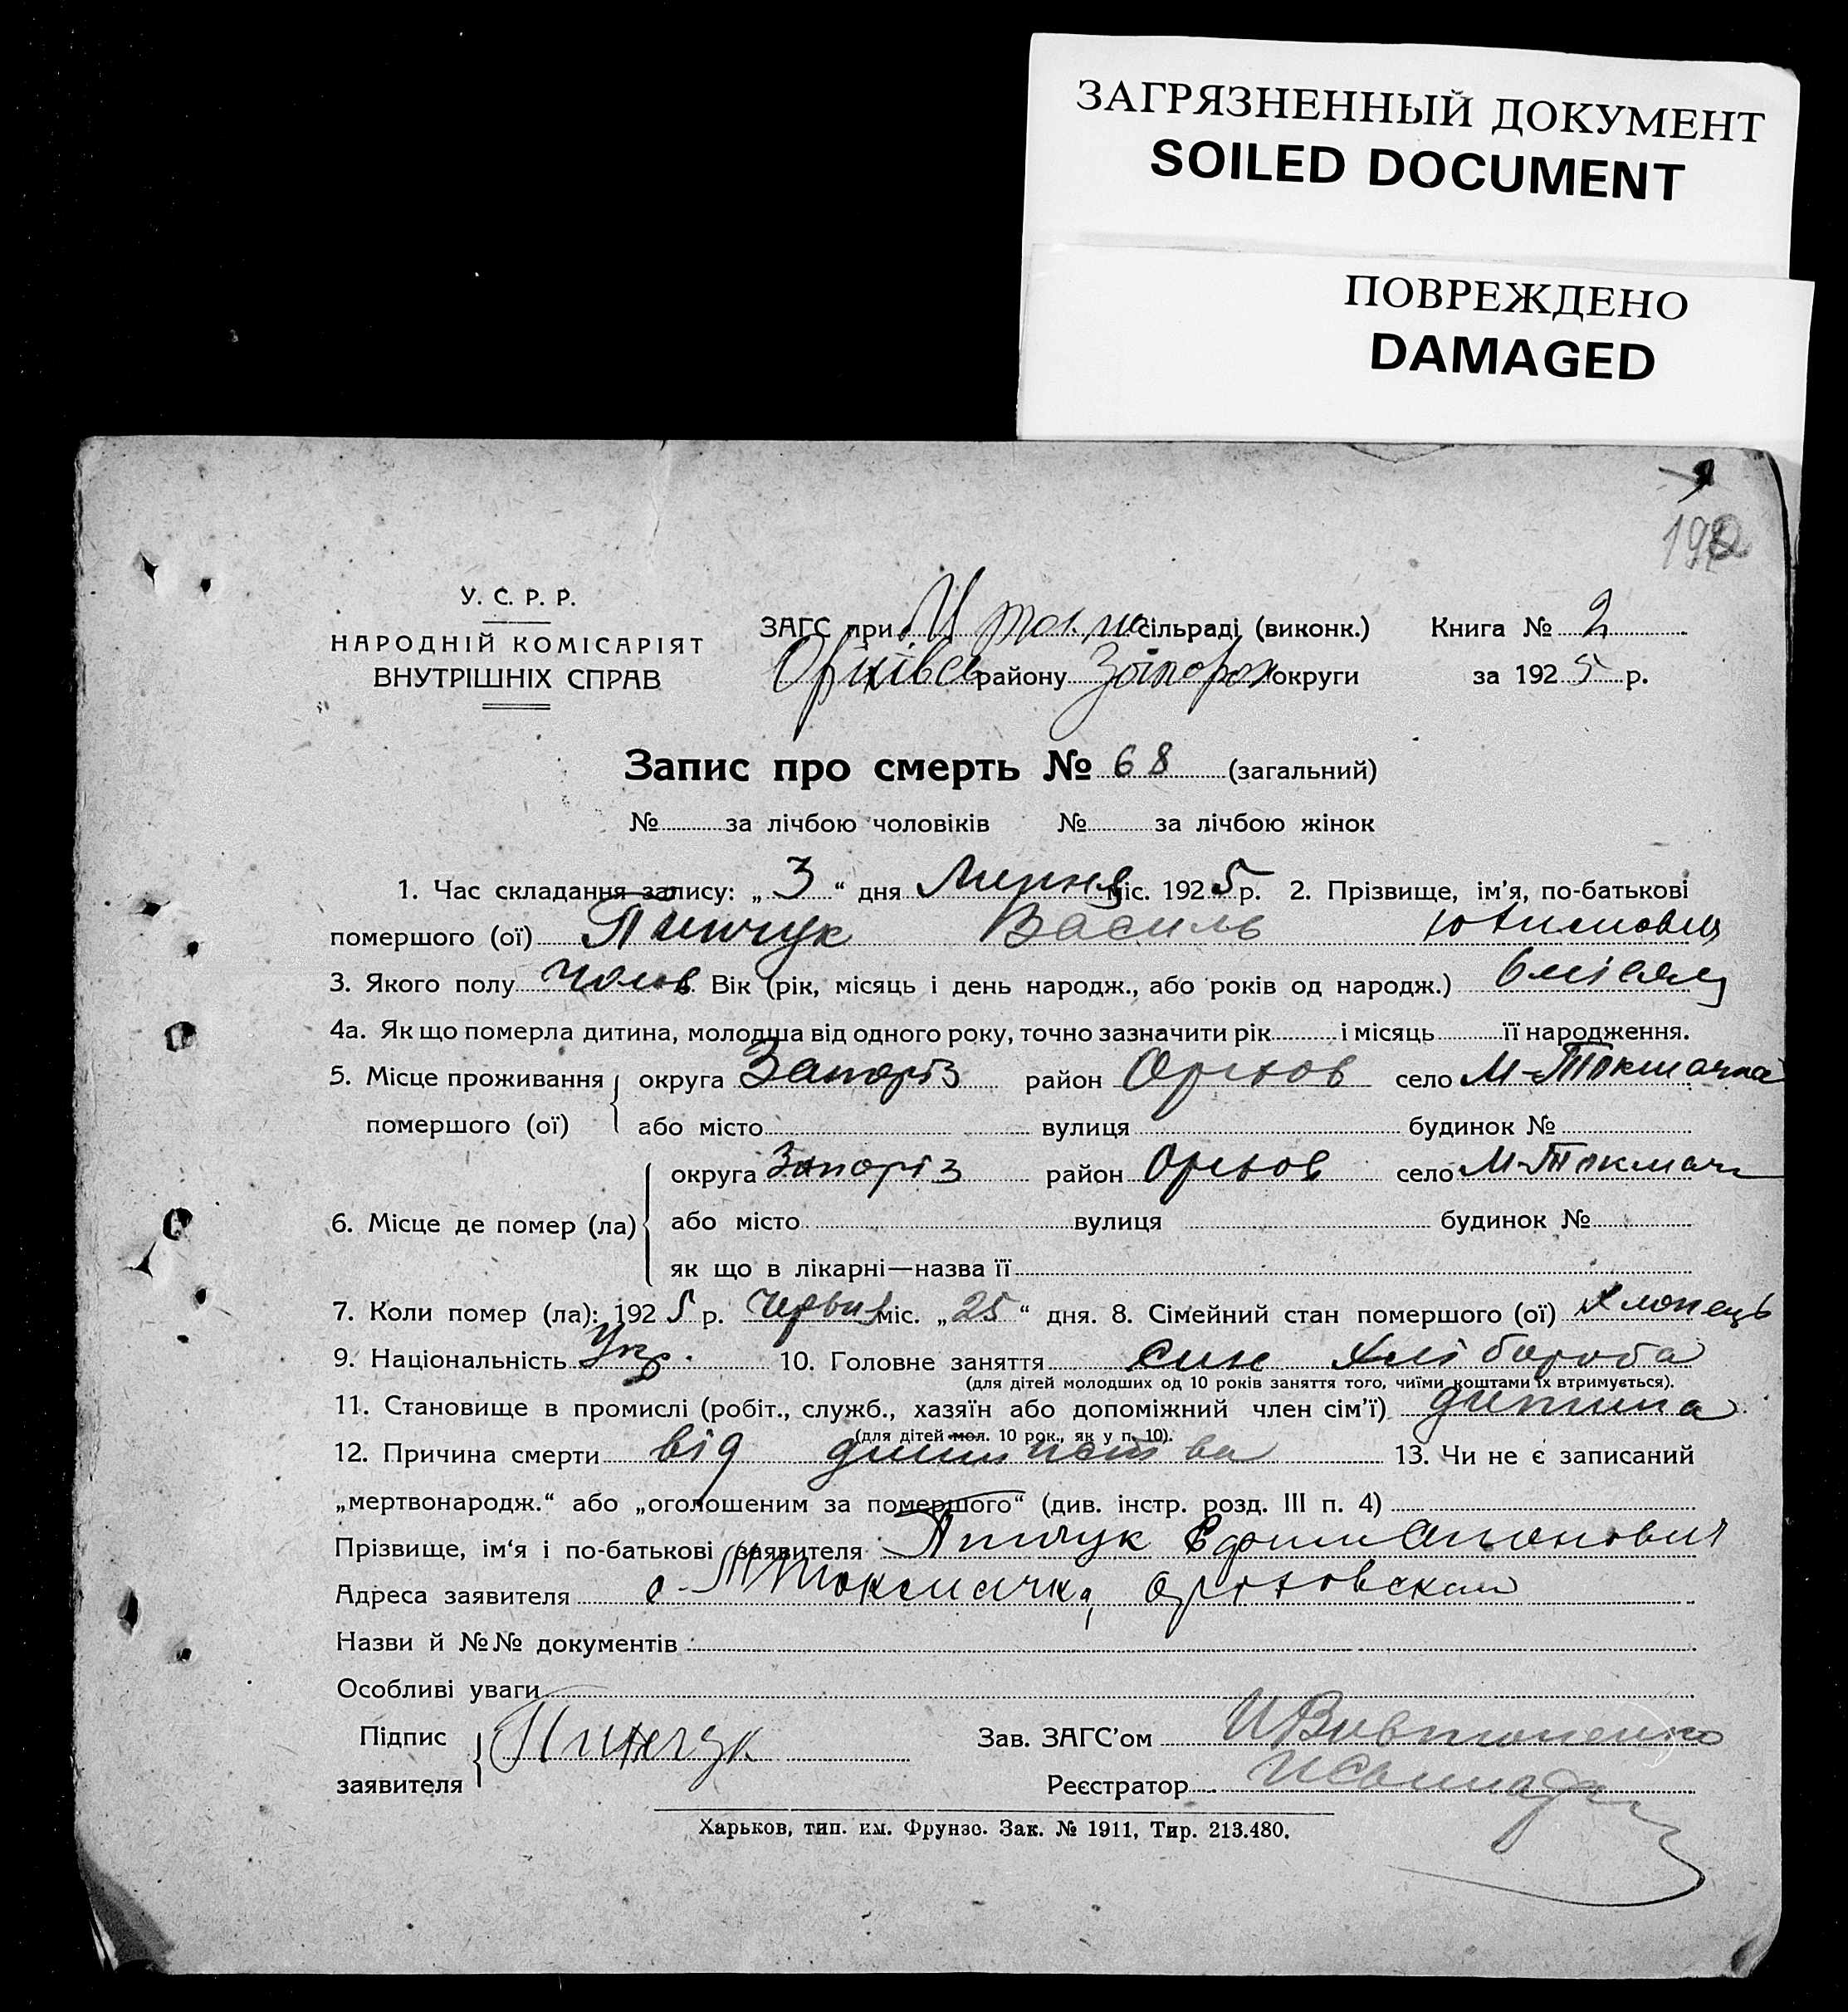 ЗАГРЯЗНЕННЫЙ ДОКУМЕНТ
SOILED DOCUMENT
ПОВРЕЖДЕНО
DAMAGED
У. С. Р. Р.
НАРОДНІЙ КОМІСАРІЯТ
ВНУТРІШНІХ СПРАВ
ЗАГС при сільраді (виконк.) Книга № 2
Оріхівсь району Запорож округи за 1925 р.
Запис про смерть № 68 (загальний)
№ за лічбою чоловіків № за лічбою жінок
1. Час складання запису: „3“ дня Липня міс. 1925 р. 2. Прізвище, ім'я, по-батькові
помершого (ої) Пинчук Василь
3. Якого полу чолов Вік (рік, місяць і день народж., або років од народж.) 6 місяц
4а. Як що померла дитина, молодша від одного року, точно зазначити рік і місяць її народження.
5. Місце проживання округа Запоріз район Оріхов село М-Токмачка
помершого (ої) або місто вулиця будинок №
округа Запоріз район Оріхов село М-Токмач
6. Місце де помер (ла) або місто вулиця будинок №
як що в лікарні—назва її
7. Коли помер (ла): 1925 р. Червня міс. „25“ дня. 8. Сімейний стан помершого (ої) хлопець
9. Національність Укр. 10. Головне заняття син хлібороба
(для дітей молодших од 10 років заняття того, чиїми коштами їх втримується).
11. Становище в промислі (робіт., служб., хазяїн або допоміжний член сім'ї) дитина
(для дітей мол. 10 рок., як у п. 10).
12. Причина смерти від 13. Чи не є записаний
„мертвонародж.“ або „оголошеним за помершого“ (див. інстр. розд. III п. 4)
Прізвище, ім'я і по-батькові заявителя Пинчук Ефим
Адреса заявителя с. М Токмачка,
Назви й №№ документів
Особливі уваги
Підпис Пинчук Зав. ЗАГС'ом
заявителя Реєстратор
Харьков, тип. им. Фрунзе. Зак. № 1911, Тир. 213.480.